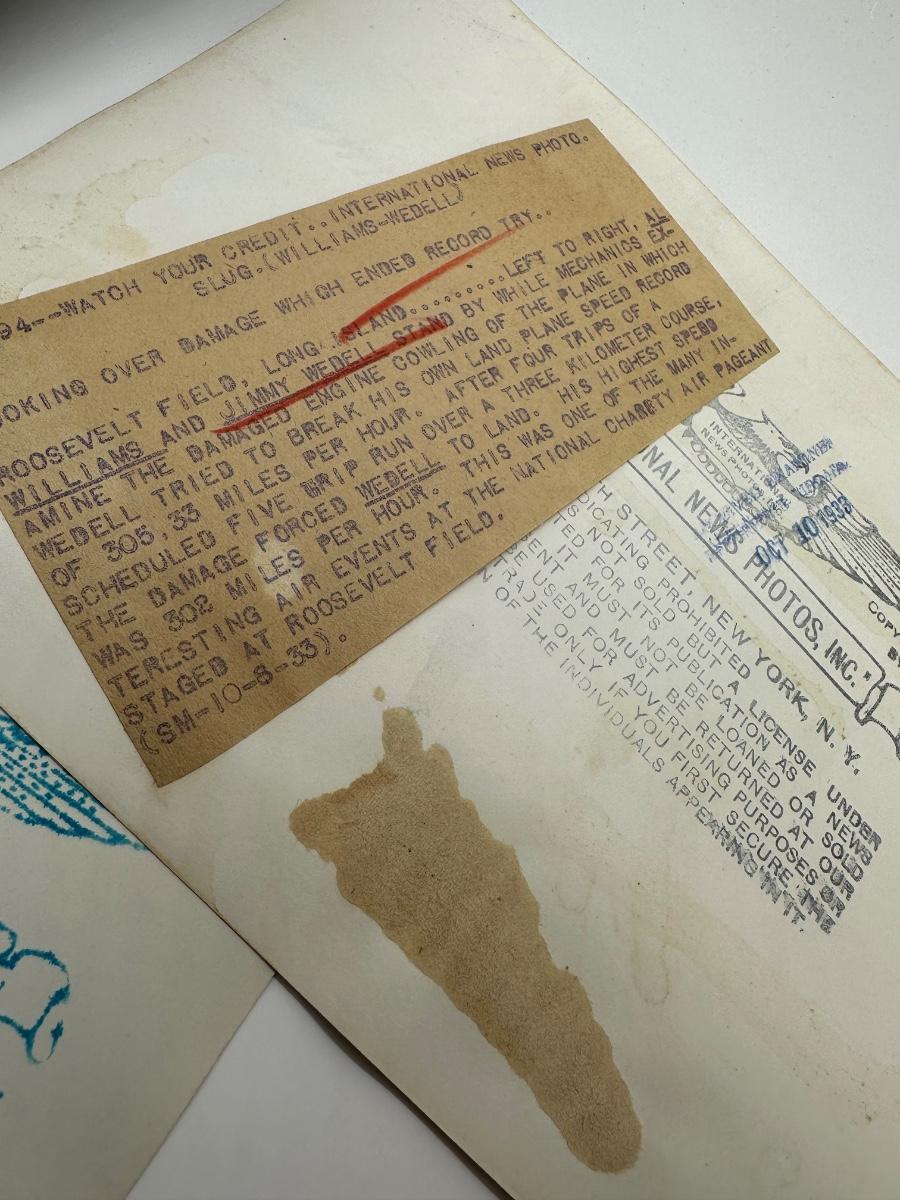 94--WATCH YOUR CREDIT..INTERNATIONAL NEWS PHOTO.
SLUG.(WILLIAMS-WEDELL)
OOKING OVER DAMAGE WHICH ENDED RECORD TRY..
ROOSEVELT FIELD, LONG ISLAND.........LEFT TO RIGHT, AL
WILLIAMS AND JIMMY WEDELL STAND BY WHILE MECHANICS EX-
AMINE THE DAMAGED ENGINE COWLING OF THE PLANE IN WHICH
WEDELL TRIED TO BREAK HIS OWN LAND PLANE SPEED RECORD
OF 305,33 MILES PER HOUR. AFTER FOUR TRIPS OF A
SCHEDULED FIVE TRIP RUN OVER A THREE KILOMETER COURSE,
THE DAMAGE FORCED WEDELL TO LAND. HIS HIGHEST SPEED
WAS 302 MILES PER HOUR. THIS WAS ONE OF THE MANY IN-
TERESTING AIR EVENTS AT THE NATIONAL CHARITY AIR PAGEANT
STAGED AT ROOSEVELT FIELD.
(SM-10-8-33).
INTERNATIONAL
NEWS PHOTO
OCT 10 1933
COPY
BY
NAL NEWS PHOTOS, INC.
H STREET, NEW YORK, N. Y.
DICATING PROHIBITED
NOT SOLD BUT A LICENSE UNDER
TED FOR ITS PUBLICATION AS A NEWS
IT MUST NOT BE LOANED OR SOLD
ENT AND MUST BE RETURNED AT OUR
BE USED FOR ADVERTISING PURPOSES OR
TRADE ONLY IF YOU FIRST SECURE THE
OF THE INDIVIDUALS APPEARING IN IT.